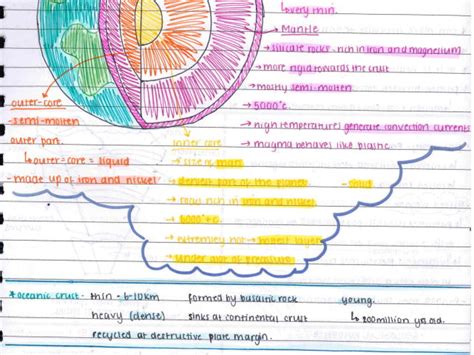 ↳very thin.
→ Mantle
→ silicate rocks. rich in iron and magnesium
→ more rigid towards the crust
→ mostly semi-molten
→ 5000°c
→ high temperatures generate convection currents
→ magma behaves like plastic.
outer-core
-semi-molten
outer part.
↳outer-core = liquid
- made up of iron and nickel
inner core
→ size of
→ densest part of the planet - solid
→ rocks rich in iron and nickel
→ 6000°c
→ extremely hot → hottest layer
→ under alot of pressure
*oceanic crust - thin - 6-10km formed by basaltic rock young.
heavy (dense) sinks at continental crust ↳ 200million yrs old.
recycled at destructive plate margin.